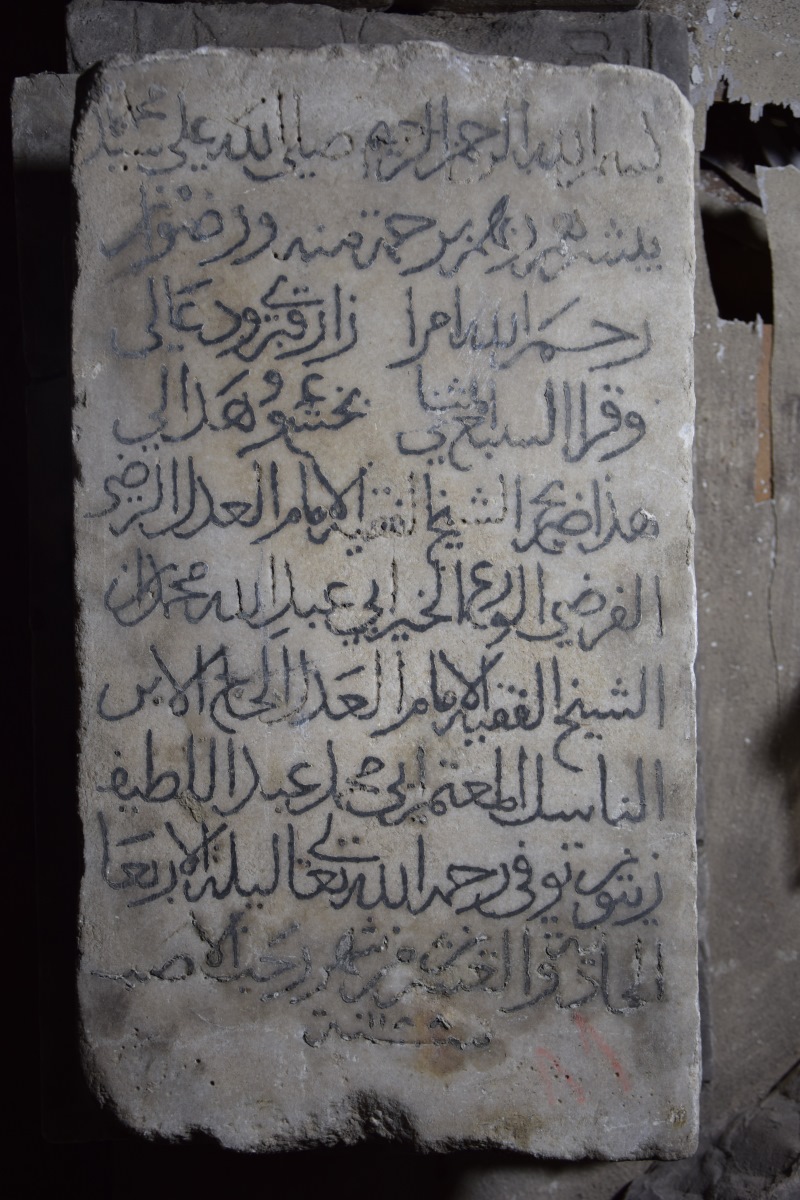 بسم الله الرحمن الرحيم صلى الله على سيدنا محمد
يبشرهم ربهم برحمة منه ورضوان
رحم الله امرا زار قبري ودعا لي
وقرا السبع المثاني بخشوع وهدا لي
هذا ضريح الشيخ الفقيه الامام العدل الرضي
الفرضي الورع الخير ابي عبد الله محمد ابن
الشيخ الفقيه الامام العدل الحاج الابر
الناسك المعتمر ابي محمد عبد اللطيف
زيتون توفي رحمه الله تعالى ليلة الاربعا
الحادية والعشرين من شهر رجب الاصب
سنة